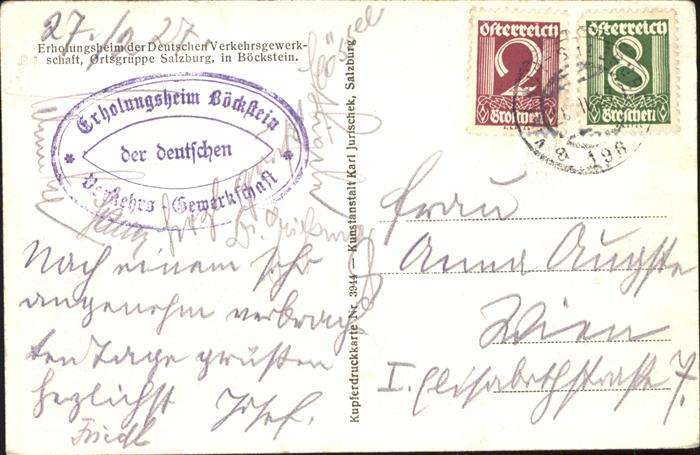 27. 27
Erholungsheim der Deutschen Verkehrsgewerk-
schaft, Ortsgruppe Salzburg, in Böckstein.
Erholungsheim Böckstein
der deutschen
Verkehrs Gewerkschaft
Nach einem sehr
angenehm verbrach
ten Tage grüßen
herzlichst Josef.
Friedl
Kupferdruckkarte Nr. 3944 — Kunstanstalt Karl Jurischek, Salzburg
Österreich
2
Groschen
Österreich
8
Groschen
Frau
Anna Auguste
Wien
I. Elisabethstraße 7.